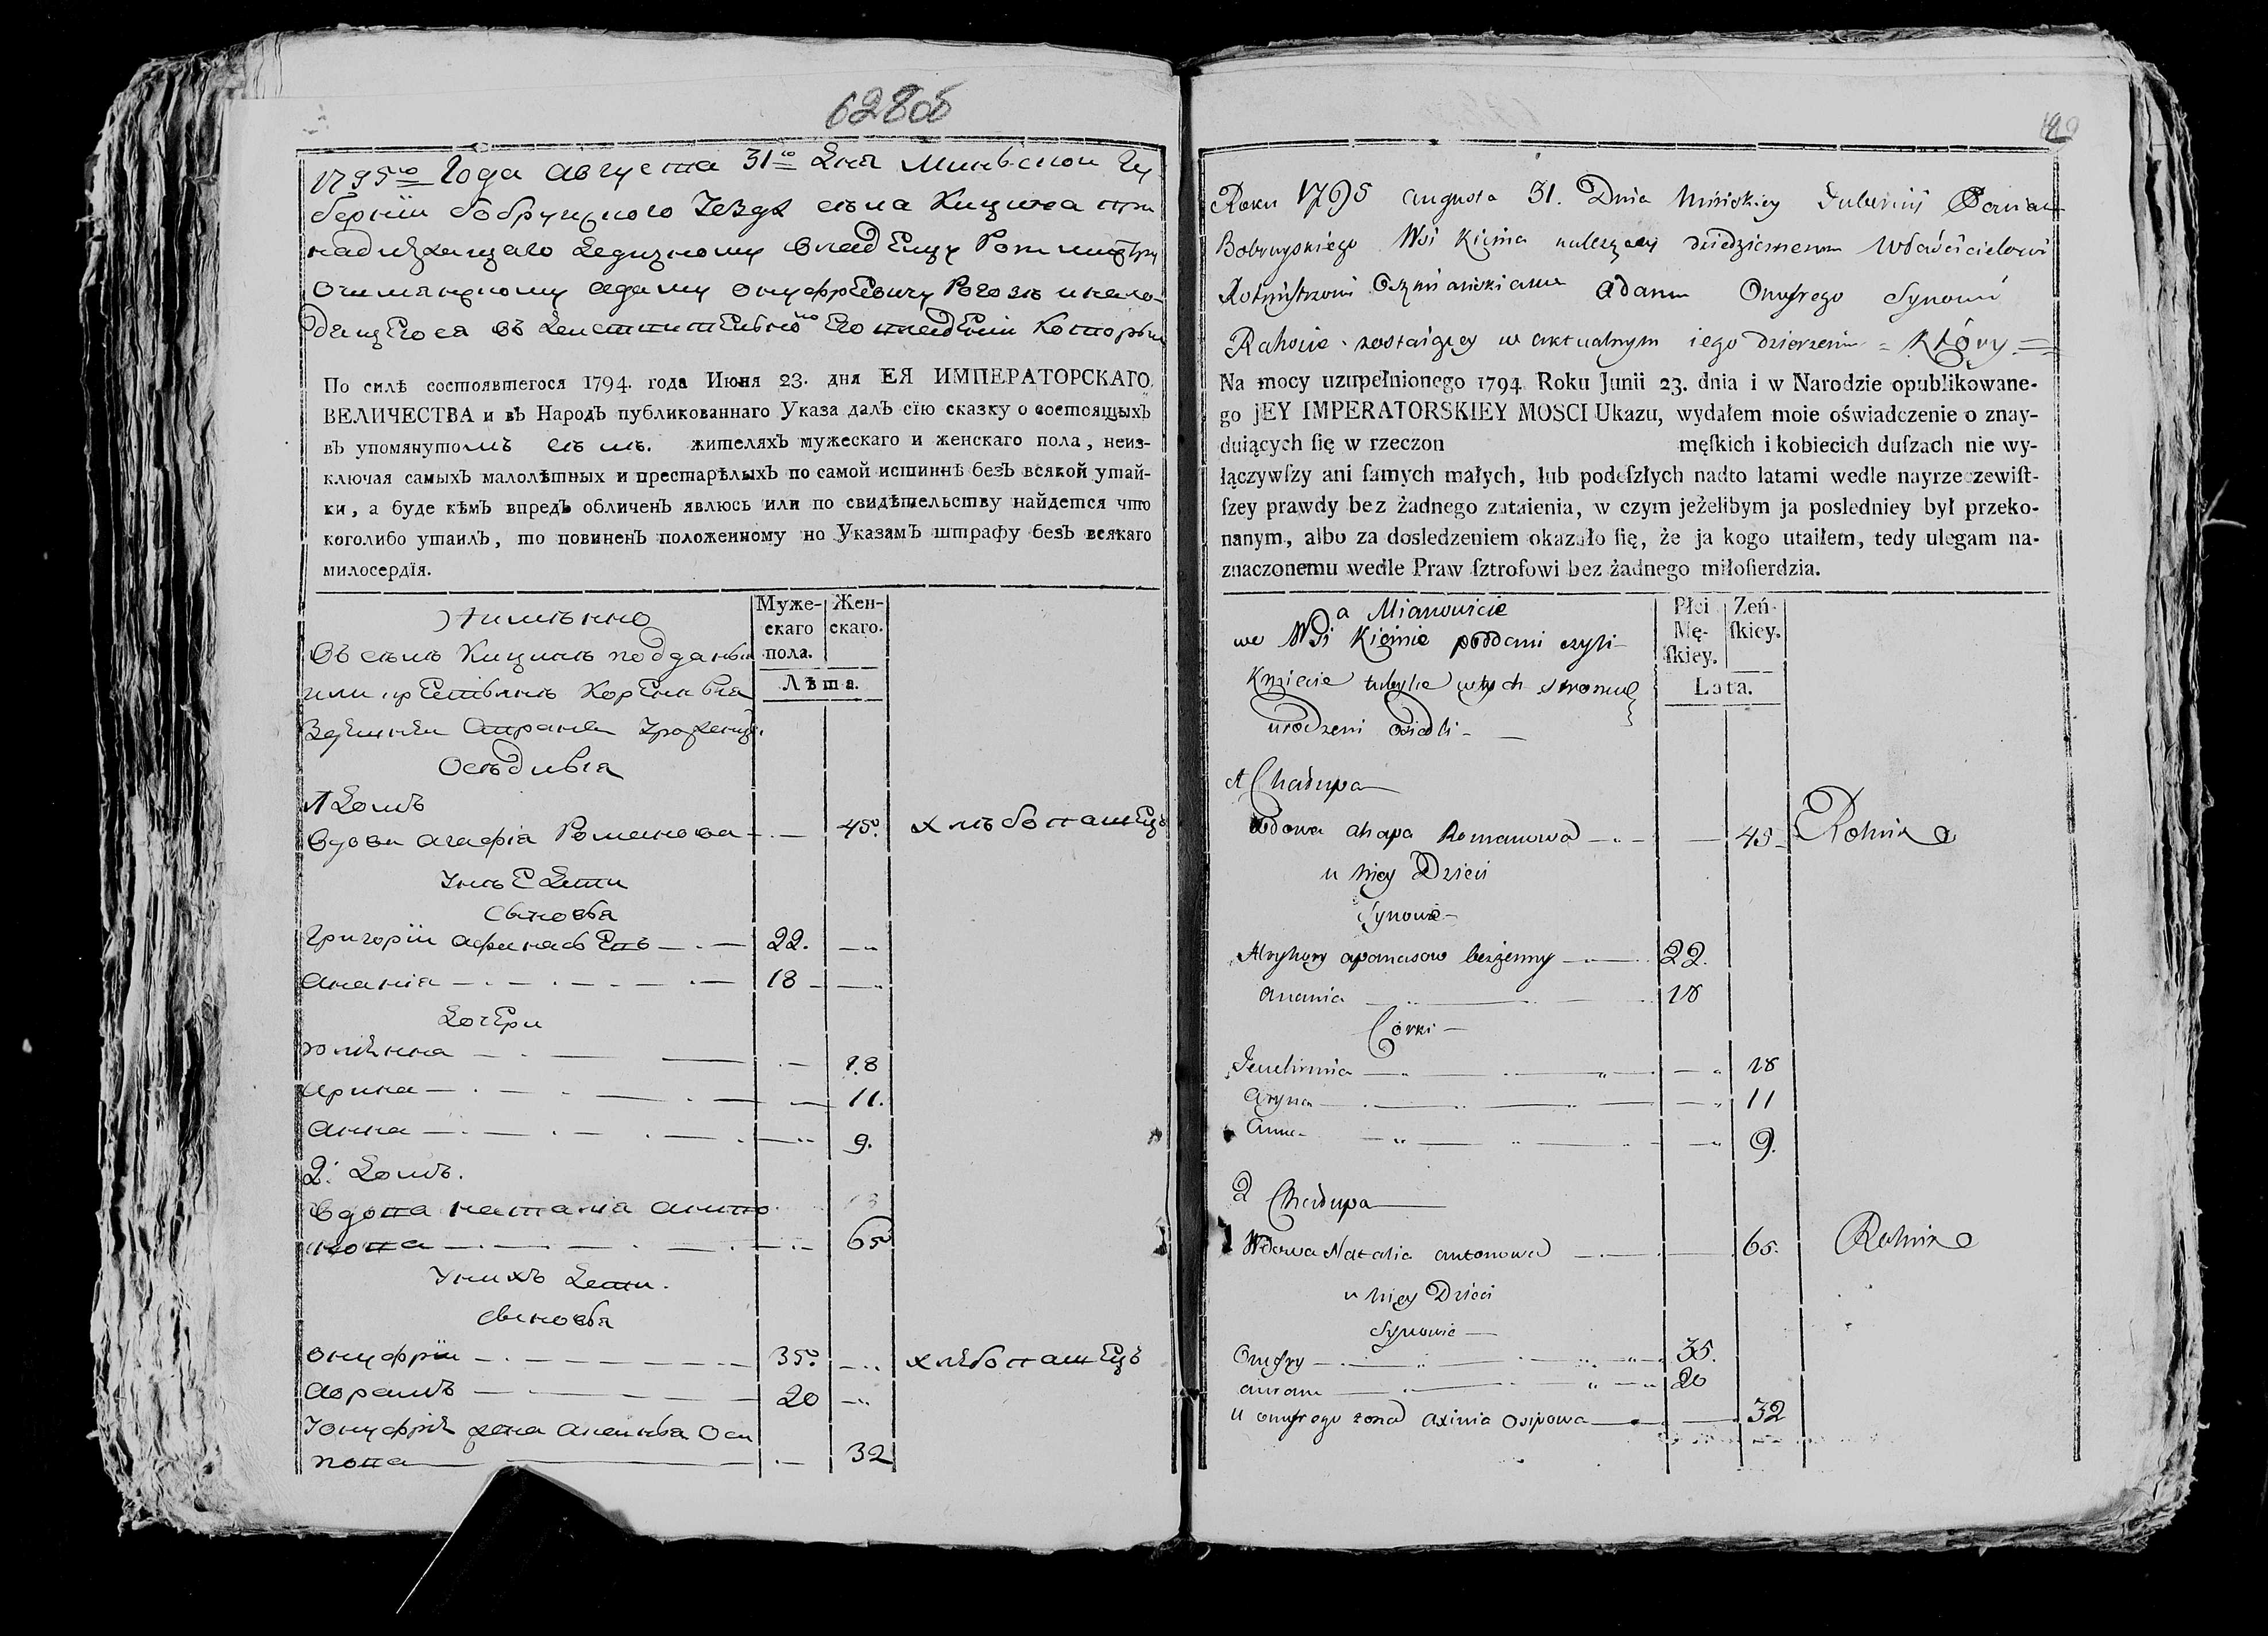 628об
1795го Года августа 31го Дня Минской Гу
берніи бобруискаго Уезда села Кицина при
надлежащаго Ведизному владелцу Ротмистру
Ошмянскому адаму онуфреевичу Рогозе инахо
дащегося въ Деиствительномъ его владеніи Которыи
По силѣ состоявшегося 1794. года Июня 23. дня ЕЯ ИМПЕРАТОРСКАГО
ВЕЛИЧЕСТВА и въ Народъ публикованнаго Указа далъ сїю сказку о состоящыхъ
въ упомянутомъ селѣ. жителяхъ мужескаго и женскаго пола, неиз-
ключая самыхъ малолѣтныхъ и престарѣлыхъ по самой истиннѣ безъ всякой утай-
ки, а буде кѣмъ впредь обличенъ явлюсь или по свидѣтельству найдется что
коголибо утаилъ, то повиненъ положенному по Указамъ штрафу безъ всякаго
милосердїя.
Муже-
скаго
пола.
Жен-
скаго.
Лѣта.
Аимѣнно
Въ селѣ Кицинѣ подданыя
или крестьянѣ Коренныя
Вздешнеи Странѣ Урожденцы
Оседлыя
1 Домъ
вдова агафіа Романова 45. хлѣбопашецъ
Унее Дети
Сыновья
Григоріи афанасьевъ 22.
ананіа 18
Дочери
18
ирина 11.
анна 9.
2: Домъ.
вдова наталіа анто
нова 65
Унихъ Дети.
сыновья
онуфріи 35. хлебопашецъ
авраамъ 20
Уонуфрія жена Оси
пова 32
Roku 1795 augusta 31. Dnia Minskiey Gubernij Powiatu
Bobruyskiego Wsi Kicina należącey dziedzicznemu Właścicielowi
Rotmistrzowi Oszmianskiemu Adamu Onufrego Synowi
Rahozie zostaiącey w aktualnym iego dzierzeniu Który
Na mocy uzupełnionego 1794 Roku Junii 23. dnia i w Narodzie opublikowane-
go jEY IMPERATORSKIEY MOSCI Ukazu, wydałem moie oświadczenie o znay-
duiących ſię w rzeczon męſkich i kobiecich duſzach nie wy-
łączywſzy ani ſamych małych, lub podeſzłych nadto latami wedle nayrzeczewiſt-
ſzey prawdy bez żadnego zataienia, w czym jeżelibym ja posledniey był przeko-
nanym, albo za dosledzeniem okazało ſię, że ja kogo utaiłem, tedy ulegam na-
znaczonemu wedle Praw ſztrofowi bez żadnego miłoſierdzia.
Płci
Mę-
ſkiey.
Zeń-
ſkiey.
Lata.
a Mianowicie
we Wsi Kicinie poddani czyli
Kmiecie tubylce w tych stronach
urodzeni osiedli
1 Chałupa
Wdowa ahapa Romanowa 45 Rolnik
u Niey Dzieci
Synowie
Hryhory apanasow bezżenny 22.
anania 18
Corki
18
aryna 11
anna 9.
2 Chałupa
Wdowa Natalia antonowa 65. Rolnik
u Niey Dzieci
Synowie
Onufry 35.
auram 20
U onufrego żona axinia Osipowa 32